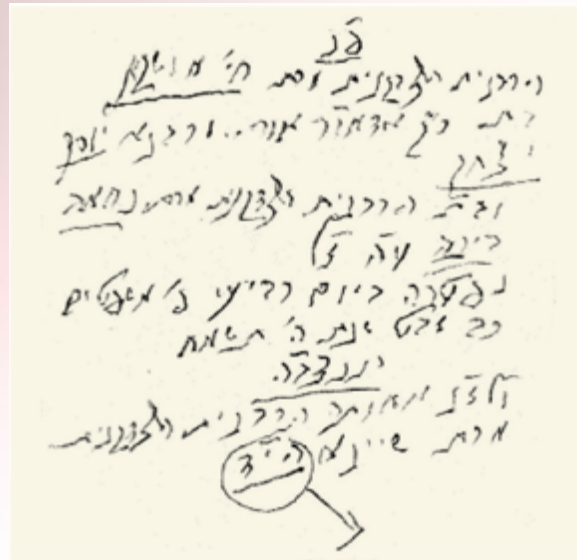 פ"נ
הרבנית הצדקנית מרת חי' מושקא
בת כ"ק אדמו"ר אור.. ורבנא יוסף
יצחק
ובת הרבנית הצדקנית מרת נחמה
דינה ע"ה ז"ל
נפטרה ביום רביעי פ' משפטים
כב שבט שנת ה' תשמח
תנצבה
ולז"נ אחותה הרבנית הצדקנית
מרת שיינא הי"ד